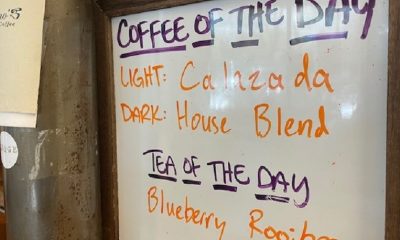 COFFEE OF THE DAY
LIGHT: Calnzada
DARK: House Blend
TEA OF THE DAY
Blueberry
Coffee